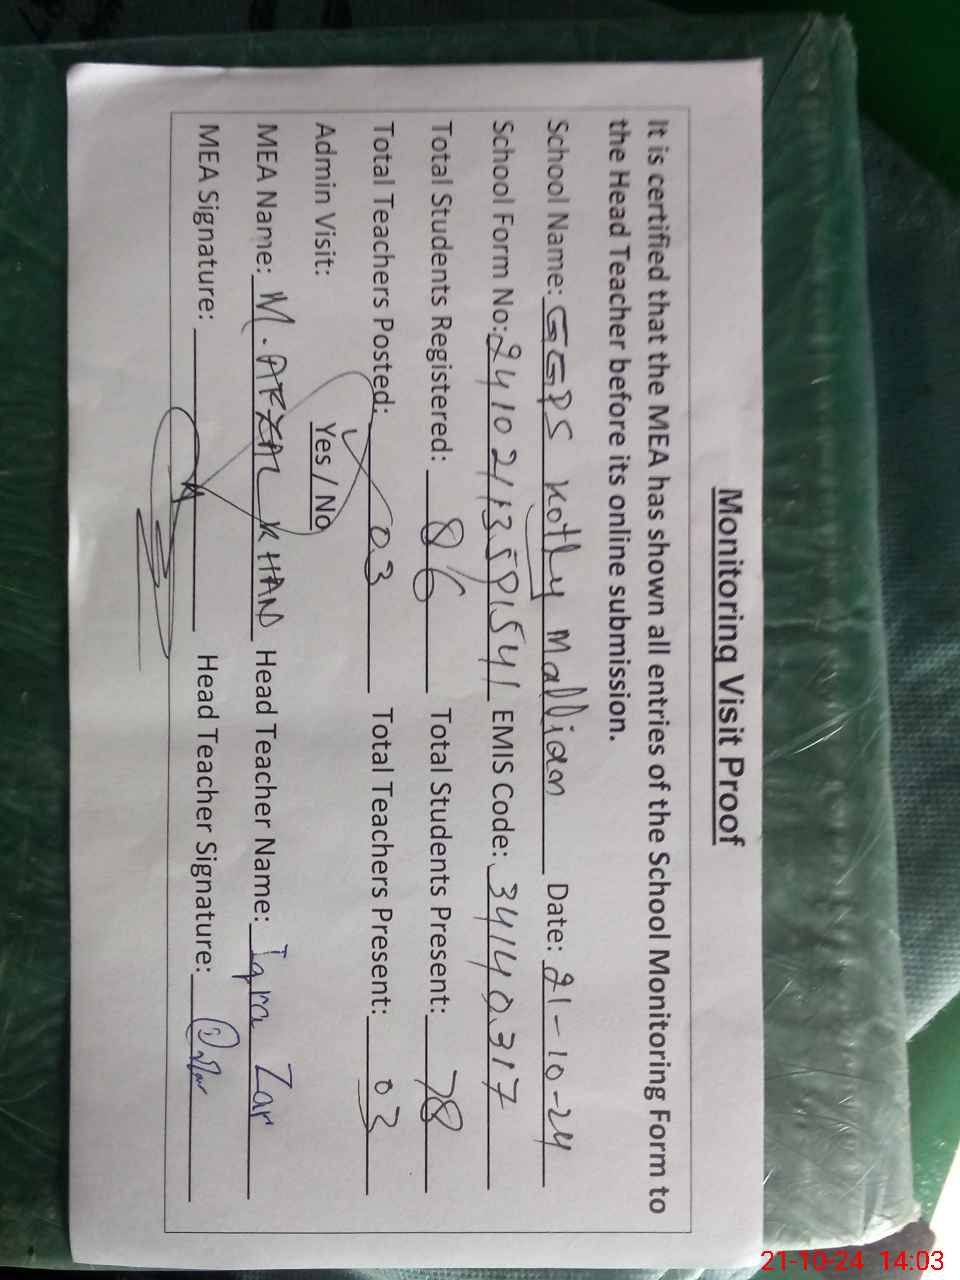 Monitoring Visit Proof
It is certified that the MEA has shown all entries of the School Monitoring Form to
the Head Teacher before its online submission.
School Name: GGPS Kotly Mallian Date: 21-10-24
School Form No: EMIS Code: 34140317
Total Students Registered: 86 Total Students Present: 78
Total Teachers Posted: 03 Total Teachers Present: 03
Admin Visit: Yes / No
MEA Name: M. AFZAL KHAN Head Teacher Name: Iqra Zar
MEA Signature: Head Teacher Signature:
21-10-24 14:03